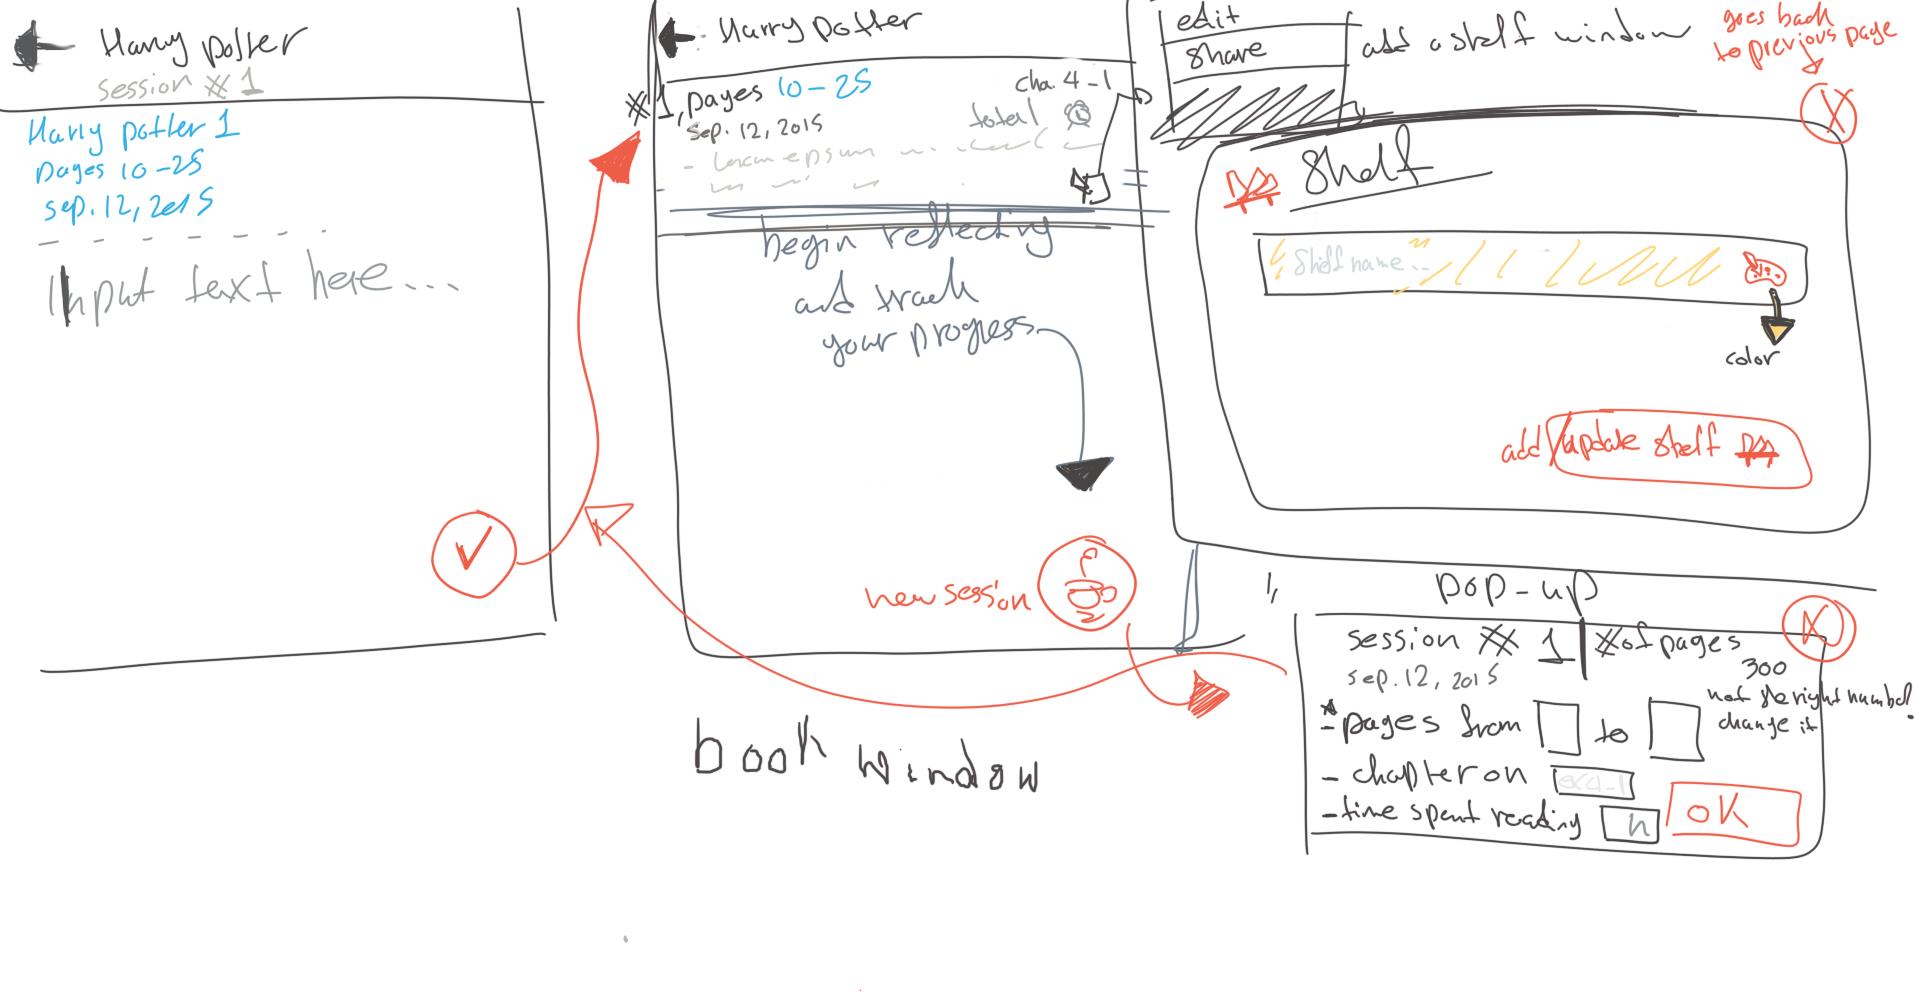 Harry potter
session # 1
Harry potter 1
pages 10-25
sep. 12, 2015
Input text here...
Harry potter
#1, pages 10-25
cha. 4-1
sep. 12, 2015
total
begin reflecting
and track
your progress
new session
book window
edit
share
add a shelf window
goes back
to previous page
X
Shelf
Shelf name...
color
add/update shelf
1,
pop-up
X
session # 1
# of pages
sep. 12, 2015
300
not the right number
change it
- pages from to
- chapter on
- time spent reading h
OK